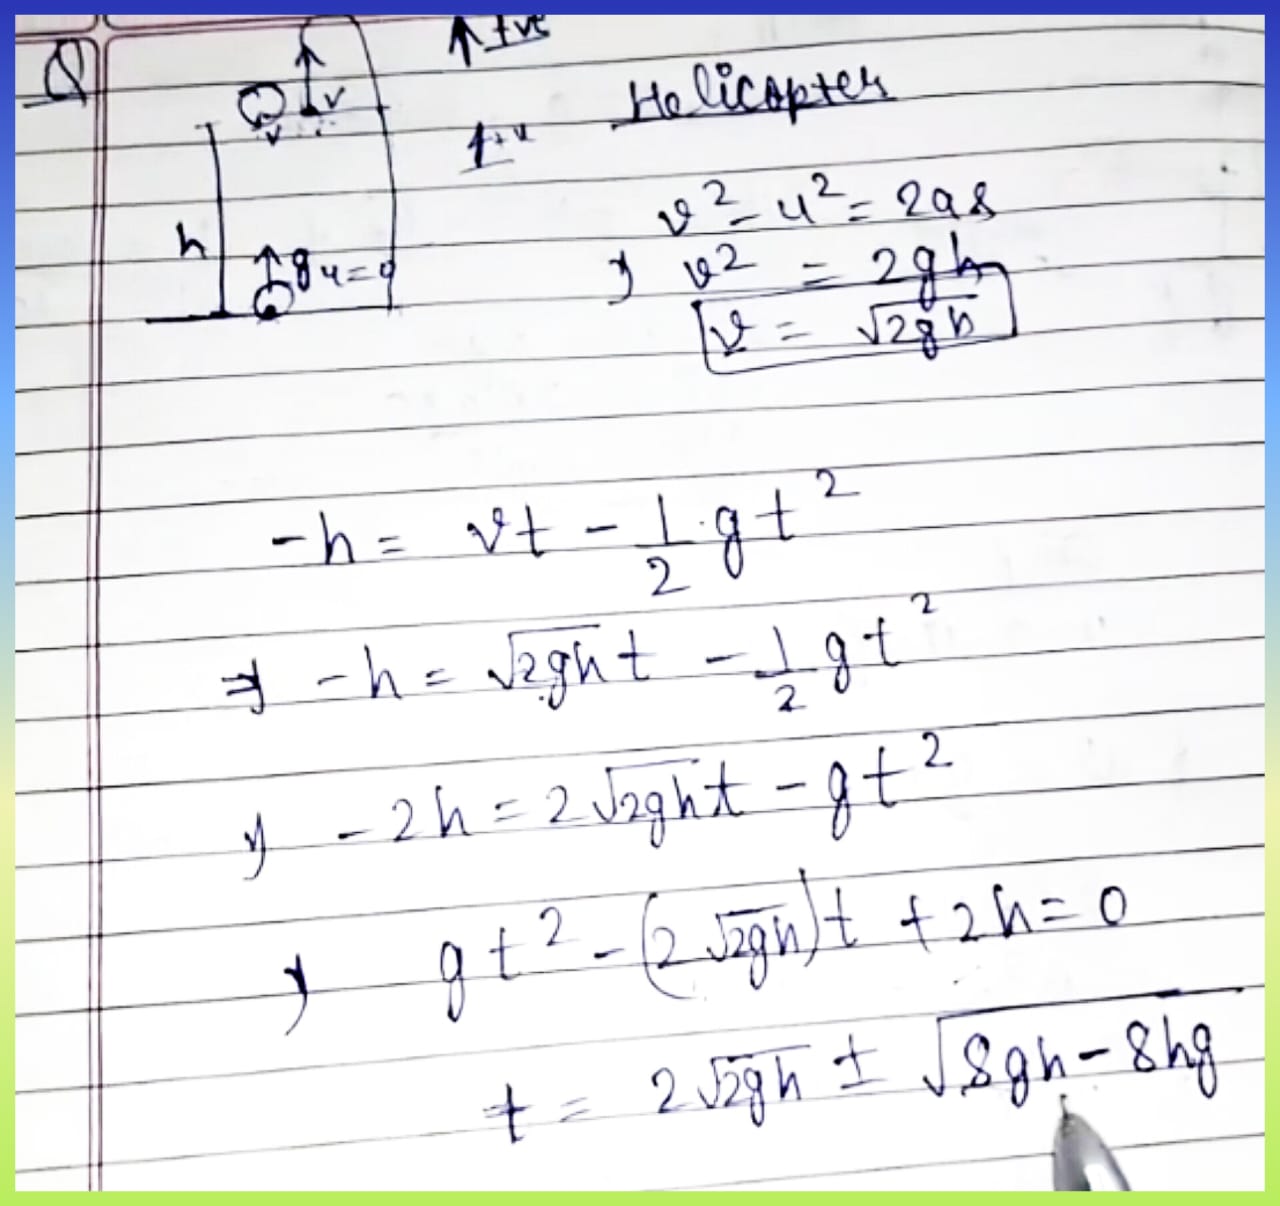 Q
↑ +ve
v
v
↑+v
Helicopter
h
g u=0
v² - u² = 2as
⇒ v² = 2gh
v = √2gh
-h = vt - 1/2 gt²
⇒ -h = √2gh t - 1/2 gt²
⇒ -2h = 2√2gh t - gt²
⇒ gt² - (2√2gh)t + 2h = 0
t = 2√2gh ± √8gh - 8hg